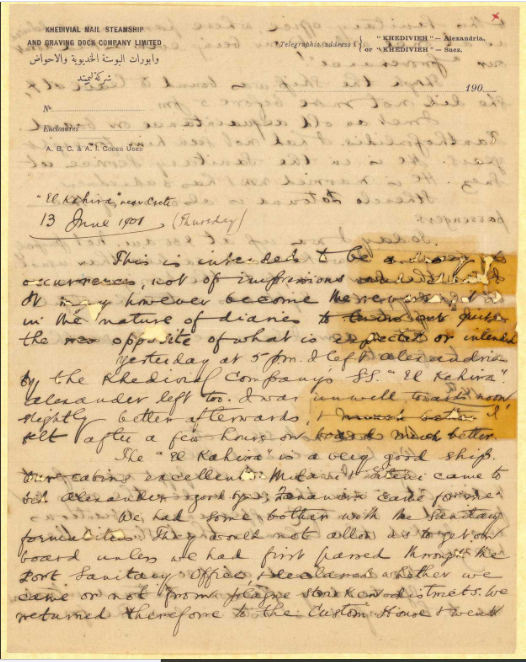 KHEDIVIAL MAIL STEAMSHIP
AND GRAVING DOCK COMPANY LIMITED
وابورات البوستة الخديوية والاحواض
شركة ليمتد
Telegraphic address {
" KHEDIVIEH " — Alexandria.
or " KHEDIVIEH " — Suez.
190
Nº
Enclosure
A. B. C. & A. I. CODES USED
"El Kahira", near Crete
13 June 1901 (Thursday)
This is intended to be a diary of
occurrences, not of impressions
It may however become the reverse, it is
in the nature of diaries to turn out quite
the opposite of what is expected or intended
Yesterday at 5 pm. I left Alexandria
by the Khedivial Company's S.S. "El Kahira".
Alexander left too. I was unwell towards noon
slightly better afterwards, & I
felt after a few hours on board much better.
The "El Kahira" is a very good ship.
Our cabins excellent. came to
bid Alexander good bye. came for me.
We had some bother with the Sanitary
formalities. They would not allow us to get on
board unless we had first passed through the
Port Sanitary Office, & declared whether we
came or not from plague stricken districts. We
returned therefore to the Custom House & went